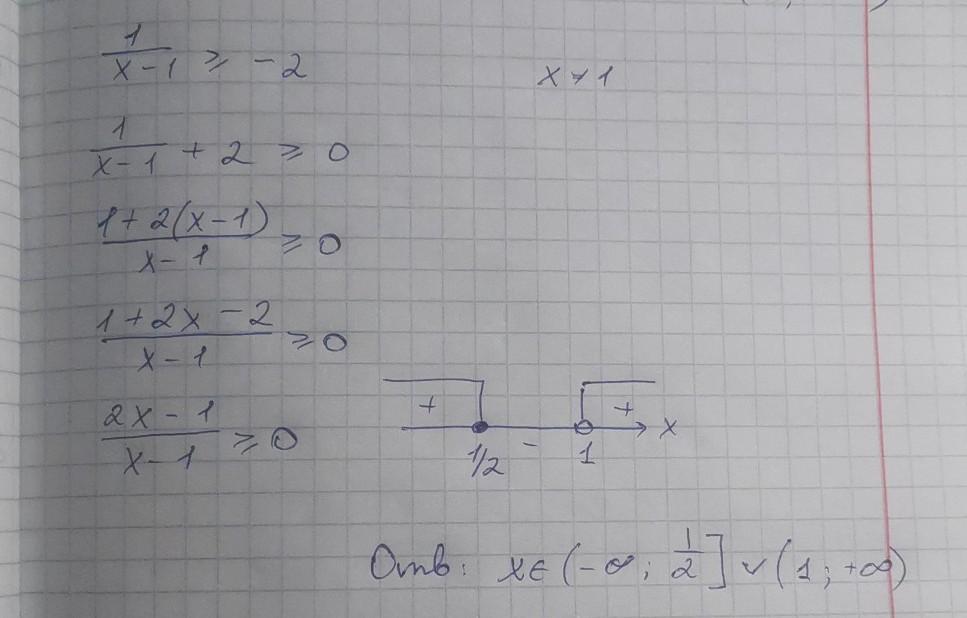 1/(x-1) ≥ -2
x ≠ 1
1/(x-1) + 2 ≥ 0
(1+2(x-1))/(x-1) ≥ 0
(1+2x-2)/(x-1) ≥ 0
(2x-1)/(x-1) ≥ 0
+ - +
1/2 1 x
Отв: x∈(-∞; 1/2] ∪ (1; +∞)